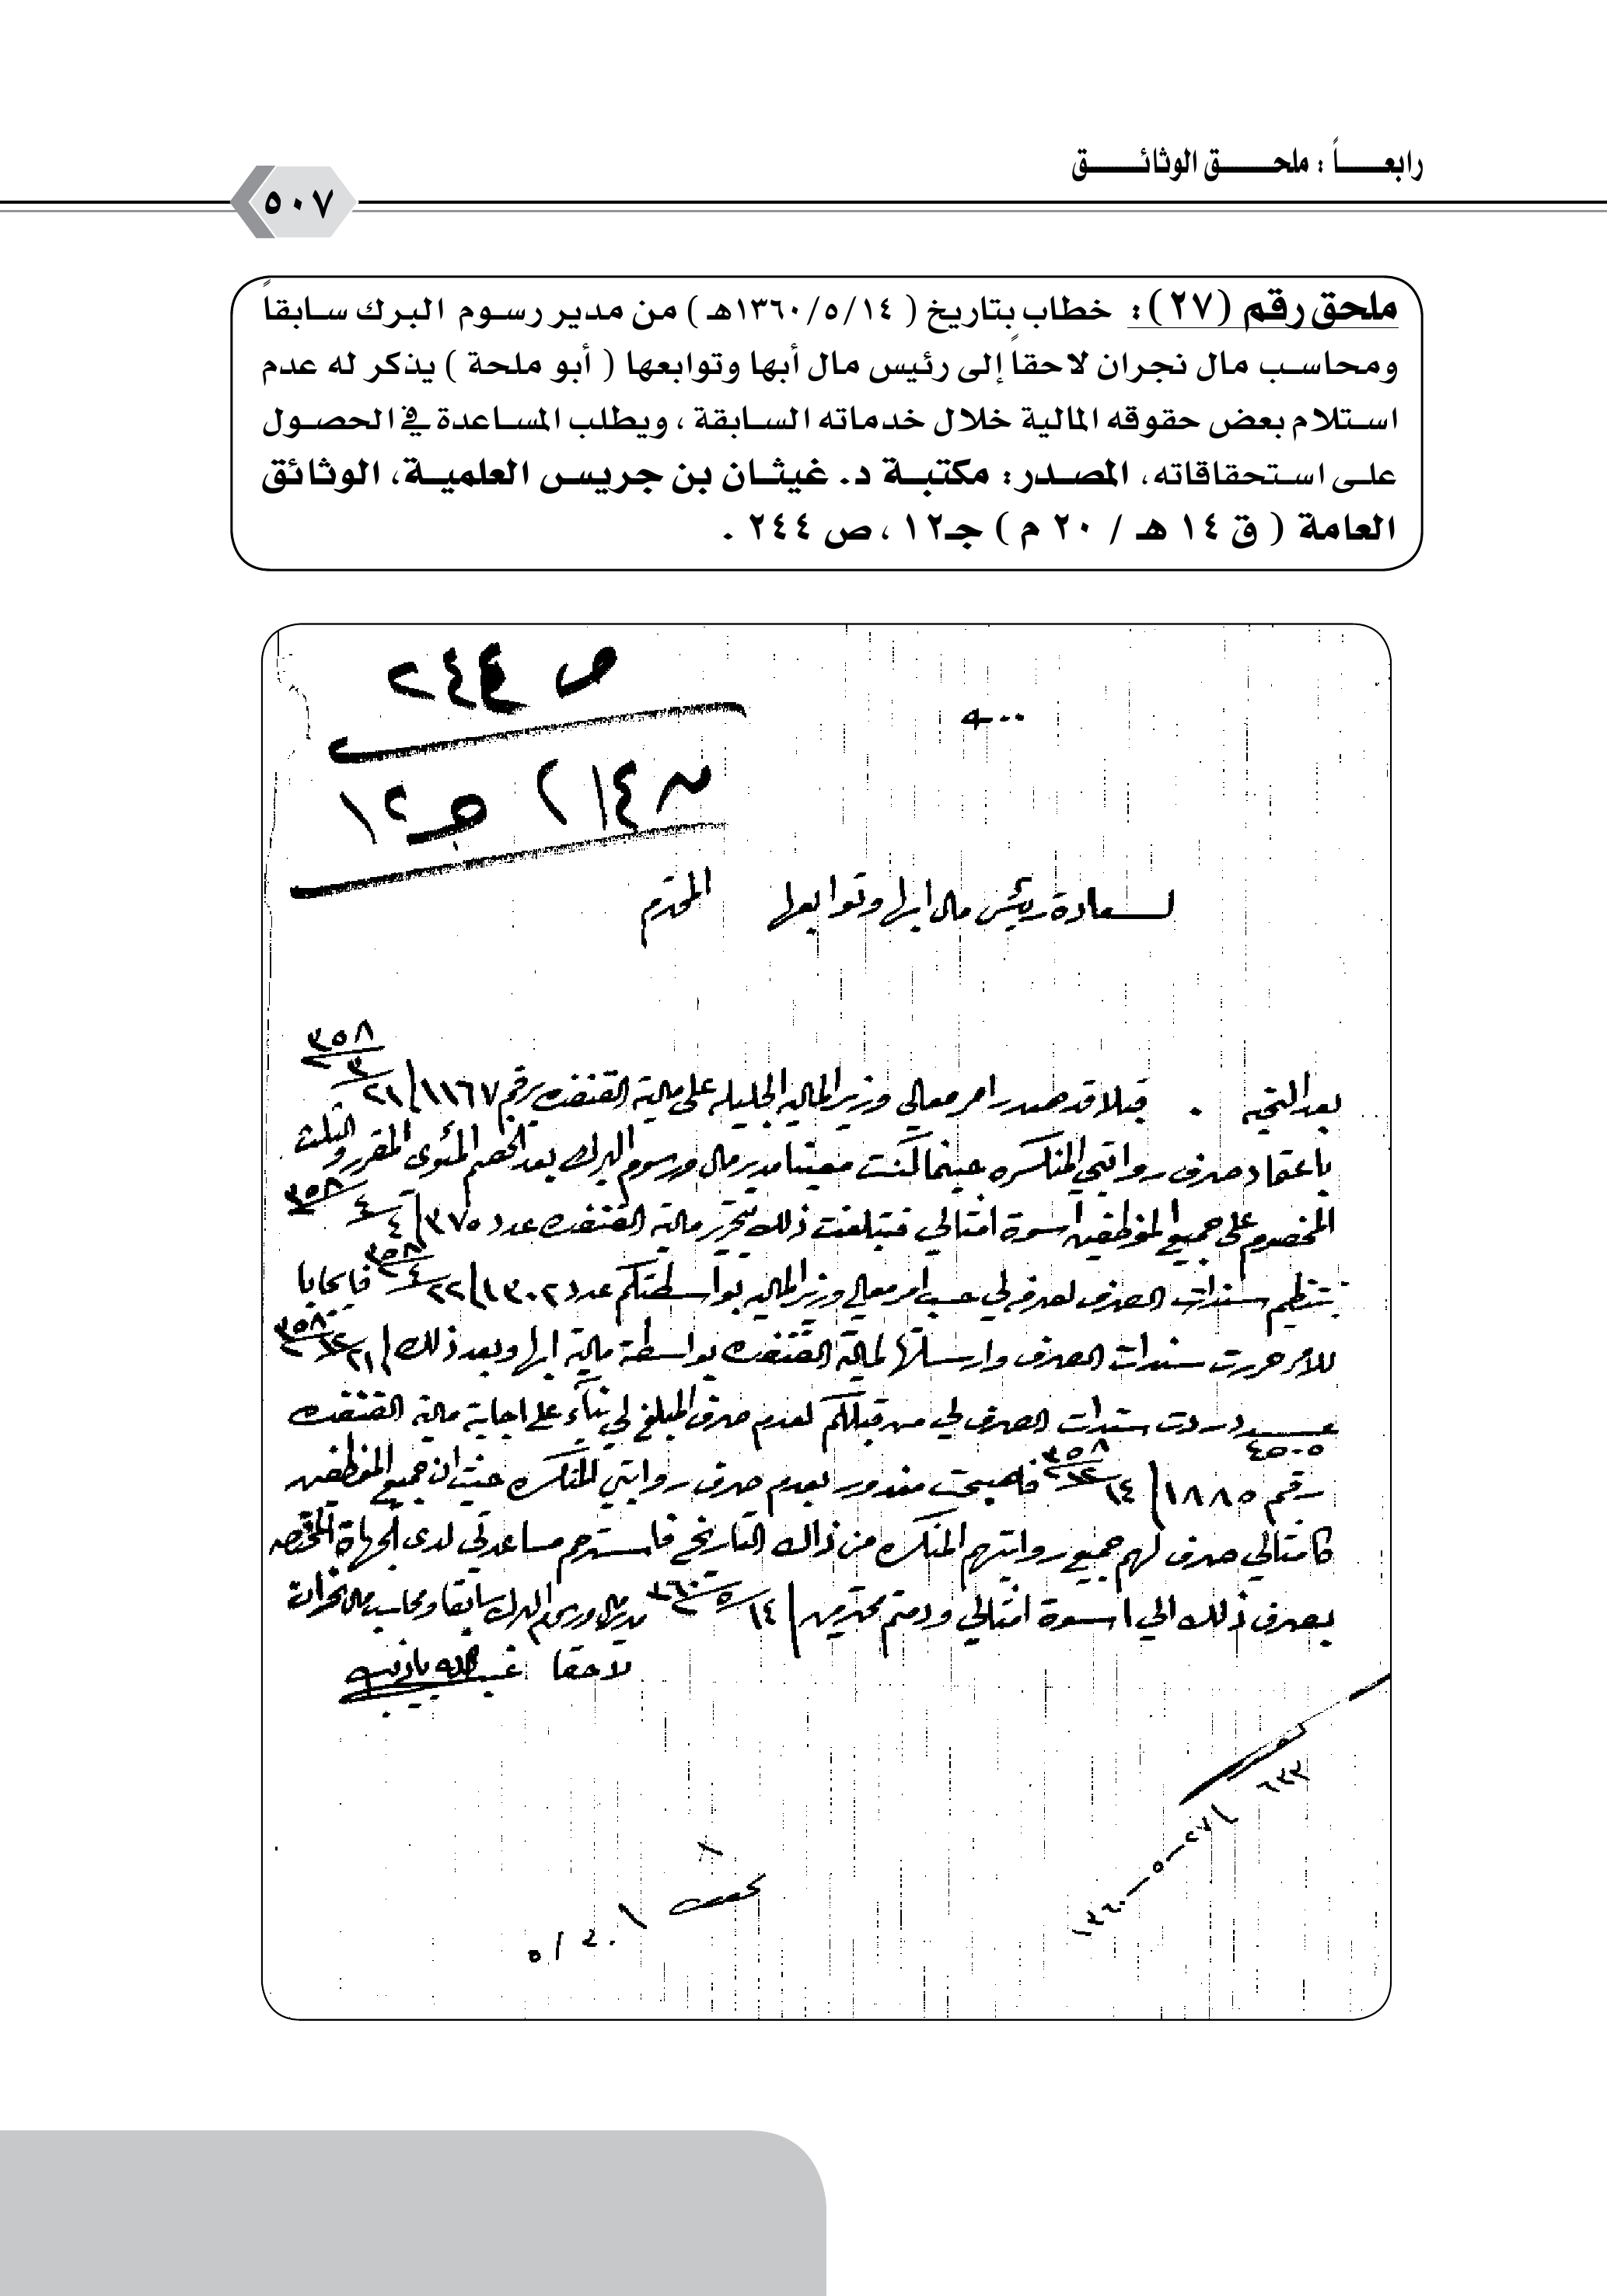 رابعـــاً : ملحـــق الوثائـــق
٥٠٧
ملحق رقم (٢٧): خطاب بتاريخ ( ١٣٦٠/٥/١٤هـ ) من مدير رسوم البرك سابقاً
ومحاسب مال نجران لاحقاً إلى رئيس مال أبها وتوابعها ( أبو ملحة ) يذكر له عدم
استلام بعض حقوقه المالية خلال خدماته السابقة ، ويطلب المساعدة في الحصول
على استحقاقاته، المصدر: مكتبة د. غيثان بن جريس العلمية، الوثائق
العامة ( ق ١٤ هـ / ٢٠ م ) جـ١٢ ، ص ٢٤٤ .
ص ٢٤٤
جـ ١٢
لسعادة رئيس مال ابها وتوابعها المحترم
بعد التحيه . قبلا قد صدر امر معالي وزير الماليه الجليله على مالية القنفذه برقم ١١٦٧/ ٢١/٣/٣٥٨
باعتماد صرف رواتبي المنكسره حينما كنت معينا مدير مال ورسوم البرك بعد الخصم المئوى المقرر والثلث
المخصوم على جميع الموظفين أسوة امثالي فتبلغت ذلك بتحرير مالية القنفذه عدد ٣٧٥/ ٤/٤/٣٥٨
بتنظيم سندات الصرف لصرفه لي حسب امر معالي وزير الماليه بواسطتكم عدد ١٣٠٢/ ٢٢/٤/٣٥٨ فايجابا
للامر حررت سندات الصرف وارسلتها لمالية القنفذه بواسطة مالية ابها وبعد ذلك / ٢١/١٢/٣٥٨
عدد ٤٥٠٥ وردت سندات الصرف لي من قبلكم لعدم صرف المبلغ لي بناء على اجابة مالية القنفذه
رقم ١٨٨٥/ ١٤/١٢/٣٥٨ فاصبحت مغدور بعدم صرف رواتبي المنكسره حيث ان جميع الموظفين
كامثالي صرف لهم جميع رواتبهم المنكسره من ذاك التاريخ فاسترحم مساعدتي لدى الجهاة المختصه
بصرف ذلك الي اسوة امثالي ودمتم محترمين / ١٤/٥/٣٦٠ مدير مال ورسوم البرك سابقا ومحاسب مال نجران
لاحقا
٦٣٣
٢٧ - ٥ - ١٣٦٠